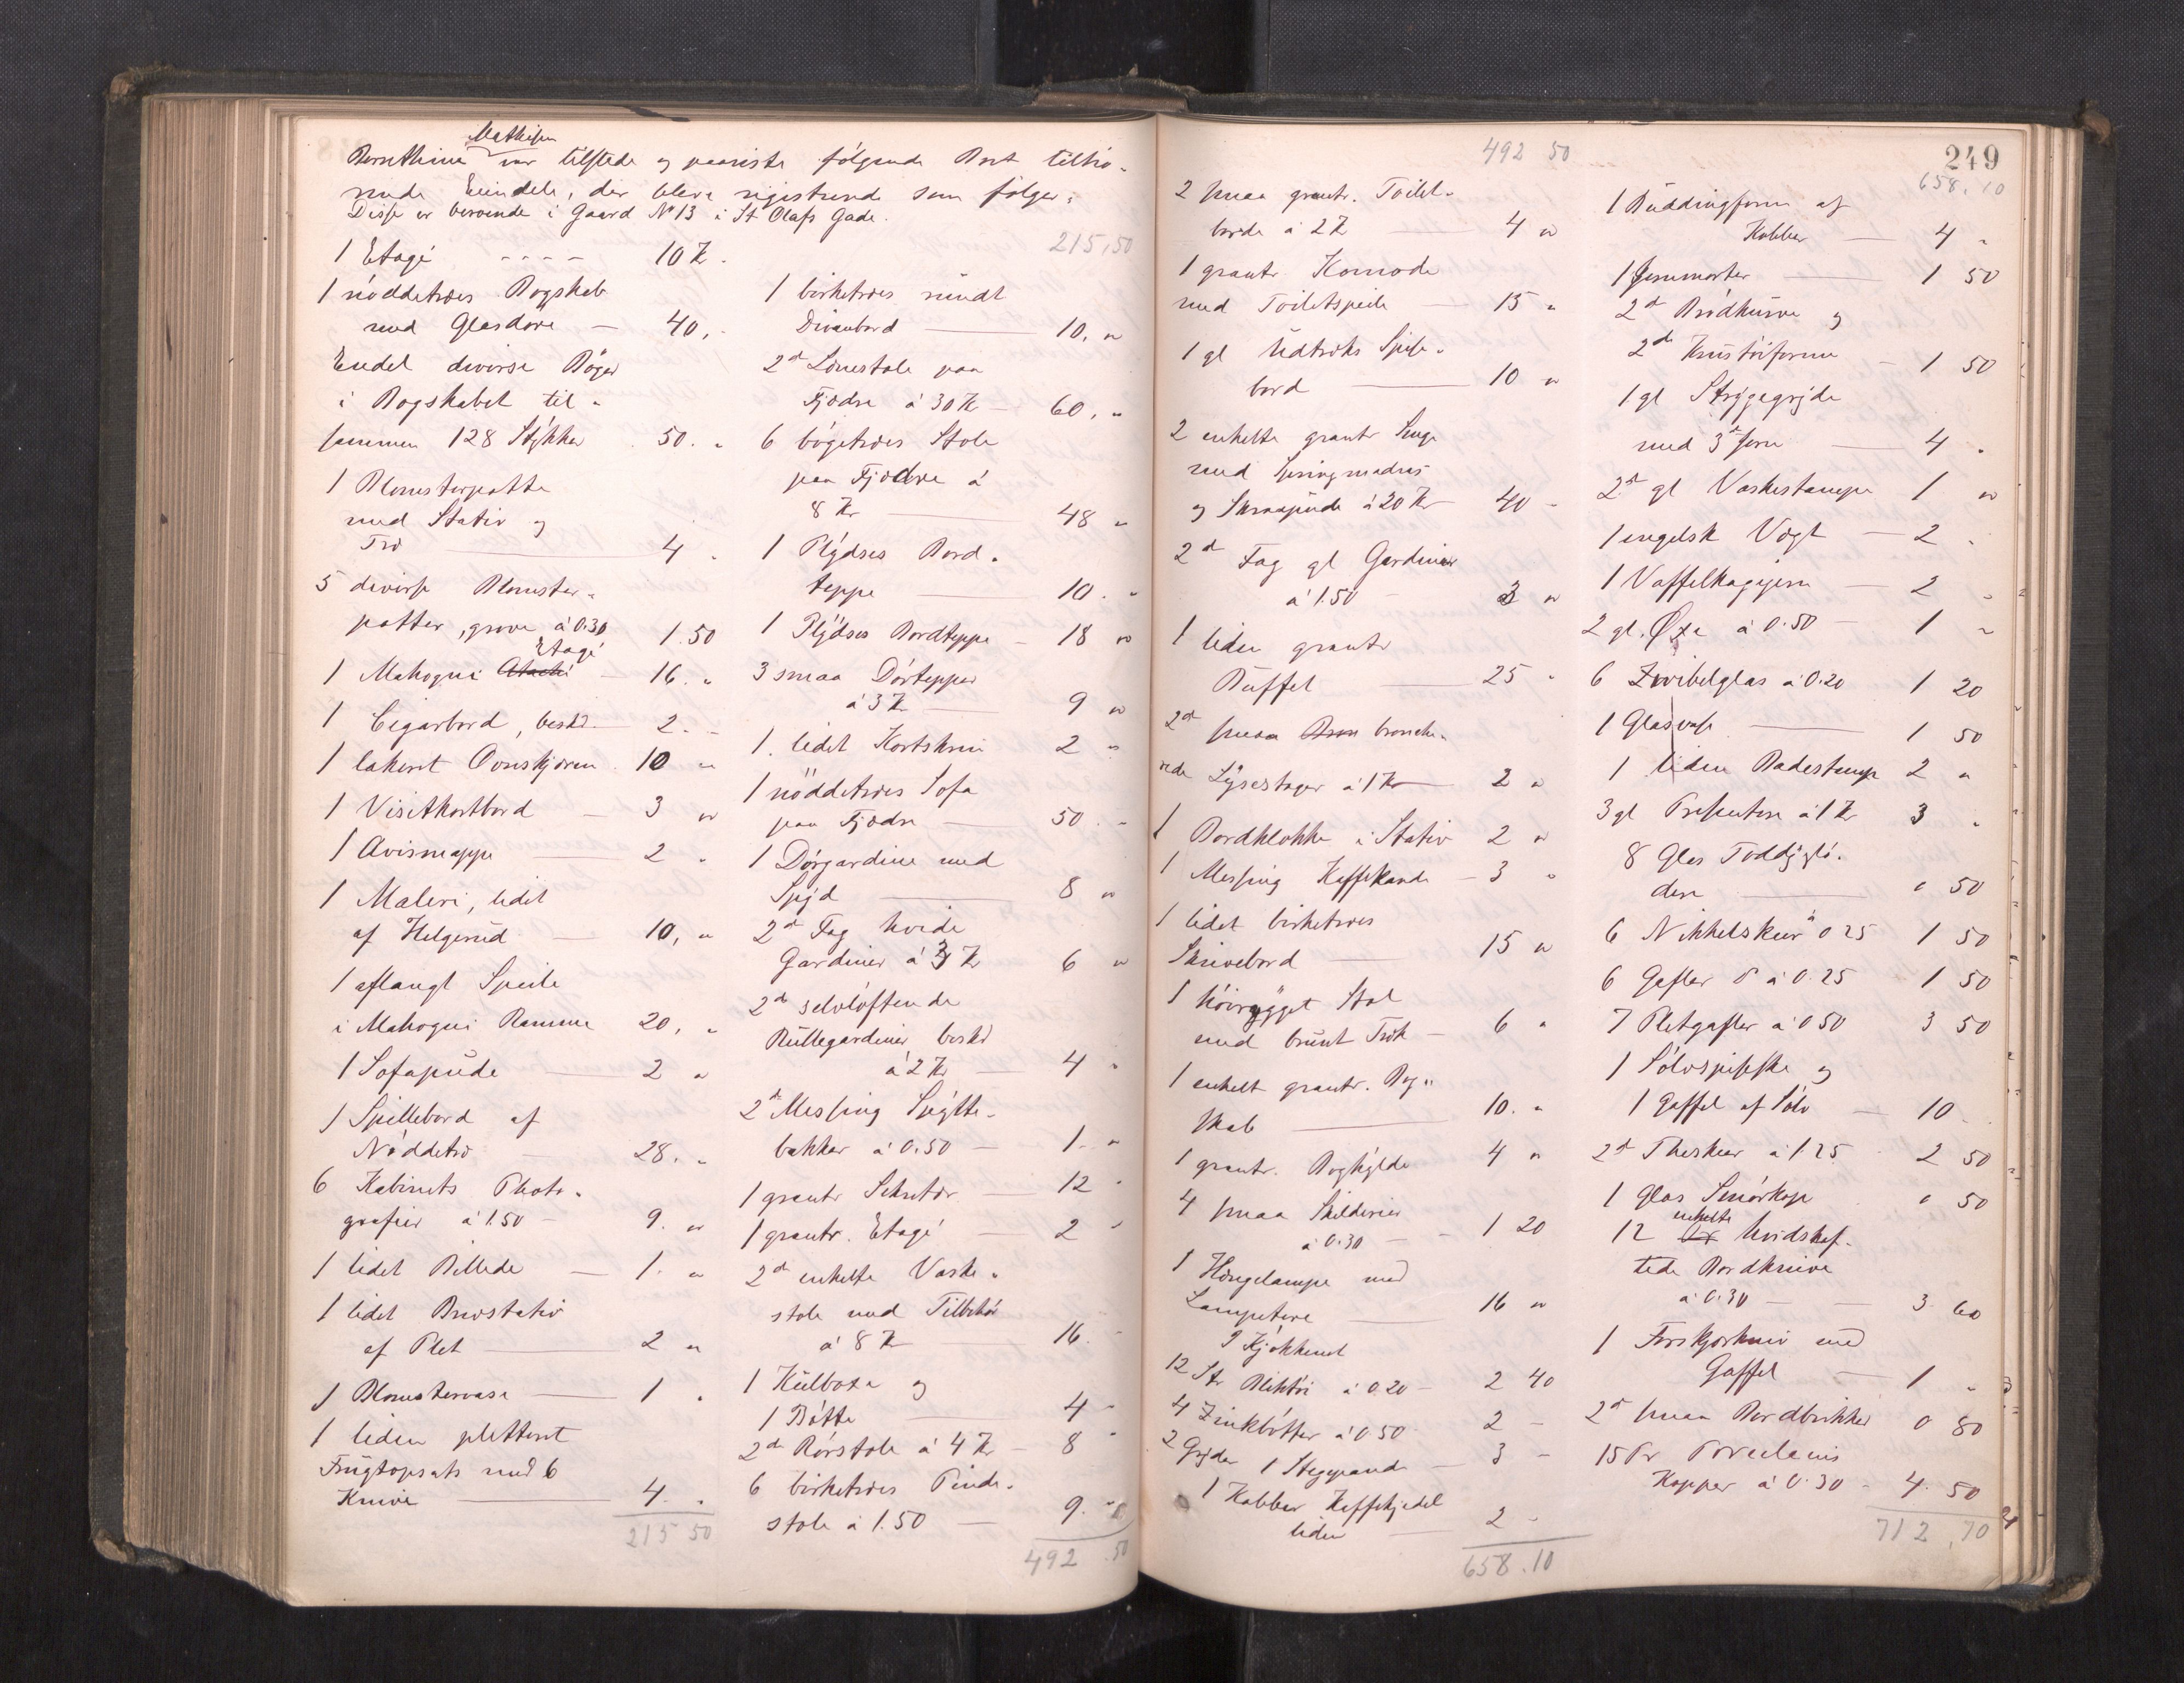 Mathisen
Bernthine var tilstede og paaviste følgende Boet tilhø-
rende Eiendele, der bleve registrerede som følger:
Disse er beroende i Gaard No 13 i St Olafs Gade.
1 Etagé - - - - 10 Kr.
1 nöddetræes Bogskab
med Glasdøre — 40,-
Endel diverse Bøger
i Bogskabet til-
sammen 128 Stykker 50. "
1 Blomsterpotte
med Stativ og
Træ — 4 "
5 diverse Blomster-
potter, grove á 0.30 1.50
Etagé
1 Mahogni Ataché — 16. "
1 Cigarbord, besk. — 2. -
1 lakeret Ovnskjærm 10 "
1 Visitkortbord — 3 "
1 Avismappe — 2 "
1 Maleri, lidet
af Helgerud — 10, "
1 aflangt Speile
i Mahogni Ramme 20, "
1 Sofapude — 2 "
1 Spillebord af
Nøddetræ 28. "
6 Kabinets Photo-
grafier á 1.50 — 9. "
1 lidet Billede — 1. "
1 lidet Brevstativ
af Plet — 2 "
1 Blomstervase — 1 "
1 liden pletteret
Frugtopsats med 6
Knive — 4. "
215 50
215,50
1 birketræes rundt
Divanbord — 10, "
2de Lænestole paa
Fjædre á 30 Kr — 60, "
6 bøgetræes Stole
paa Fjædre á
8 Kr — 48 "
1 Plydses Bord-
teppe — 10. "
1 Plydses Bordteppe — 18 "
3 smaa Dørtepper
á 3 Kr — 9 "
1. lidet Kortskrin 2 "
1 nöddetræes Sofa
paa Fjædre — 50. "
1 Dørgardine med
Spyd — 8 "
2de Fag hvide
Gardiner á 3 Kr 6 "
2de selvløftende
Rullegardiner besk
á 2 Kr — 4 "
2de Messing Spytte-
bakker á 0.50 — 1. "
1 grantr Sekretær — 12 "
1 grantr. Etagé — 2 "
2de enkelte Vaske-
stole med Tilbehør
á 8 Kr — 16. -
1 Kulboxe og
1 Bøtte — 4 "
2de Rørstole á 4 Kr — 8 "
6 birketræes Pinde-
stole á 1.50 — 9. "
492 .50
492 50
2 smaa grantr. Toilet-
borde á 2 Kr — 4 "
1 grantr Komode
med Toiletspeile — 15 "
1 gl Udtræks Spise-
bord — 10 "
2 enkelte grantr Senge
med Springmadras
og Skraapude á 20 Kr 40 -
2de Fag gl Gardiner
á 1.50 — 3 "
1 liden grantr
Buffet — 25 "
2de smaa Bron bronche-
rede Lysestager á 1 Kr — 2 "
1 Bordklokke i Stativ 2 "
1 Messing Kaffekande — 3 "
1 lidet birketræes
Skrivebord — 15 "
1 høirygget Stol
med brunt Træk — 6 "
1 enkelt grantr. Bog-
skab — 10. "
1 grantr. Boghylde 4 "
4 smaa Skilderier
á 0.30 — 1 20
1 Hængelampe med
Lampetere — 16 "
I Kjøkkenet
12 St Bliktøi á 0.20 — 2 40
4 Zinkbøtter á 0.50 2 -
2 Gryder 1 Stegepande — 3 -
1 Kobber Kaffekjedel
liden — 2 -
658.10
249
658.10
1 Buddingform af
Kobber — 4 "
1 Jernmorter — 1 50
2de Brødkurve og
2de Krustøiforme — 1 50
1 gl Strygegryde
med 3de Jern — 4 "
2de gl Vaskestampe 1 "
1 engelsk Vægt — 2 "
1 Vaffelkagejern — 2 "
2 gl. Øxe á 0.50 — 1 "
6 Zwibelglas á 0.20 1 20
1 Glasvase — 1 50
1 liden Badestamp 2 "
3 gl Presentere á 1 Kr 3 "
8 Glas Toddyglø-
dere — " 50
6 Nikkelskeer á 0 25 1 50
6 Gafler do á 0.25 1 50
7 Pletgafler á 0 50 3 50
1 Sølvspiseske og
1 Gaffel af Sølv — 10
2de Theskeer á 1.25 2 50
1 Glas Smørkop " 50
enkelte
12 hvidskaf-
tede Bordknive
á 0.30 — 3. 60
1 Forskjærkniv med
Gaffel — 1 "
2de smaa Bordbrikker 0 80
15 Pr Porcelains
Kopper á 0.30 - 4. 50
712.70